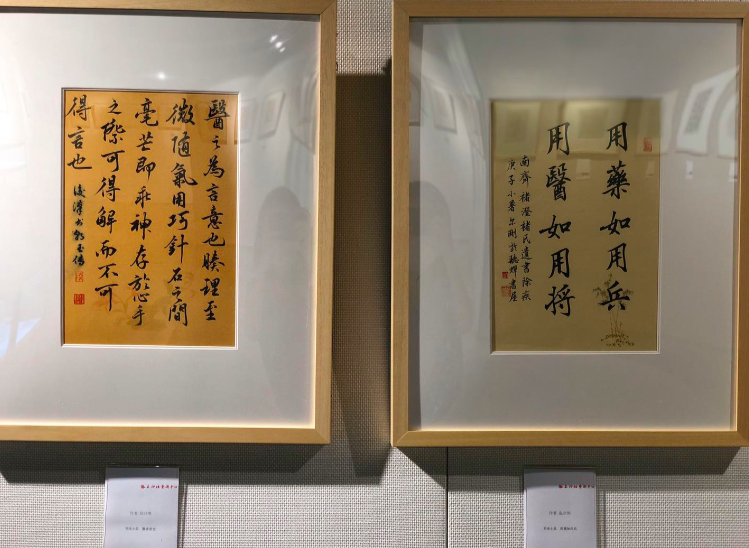 醫之為言意也腠理至
微隨氣用巧針石之間
毫芒即乖神存於心手
之際可得解而不可
得言也
後漢書郭玉傳
用藥如用兵
用醫如用將
南齊褚澄褚氏遺書除疾
庚子小暑
書屋